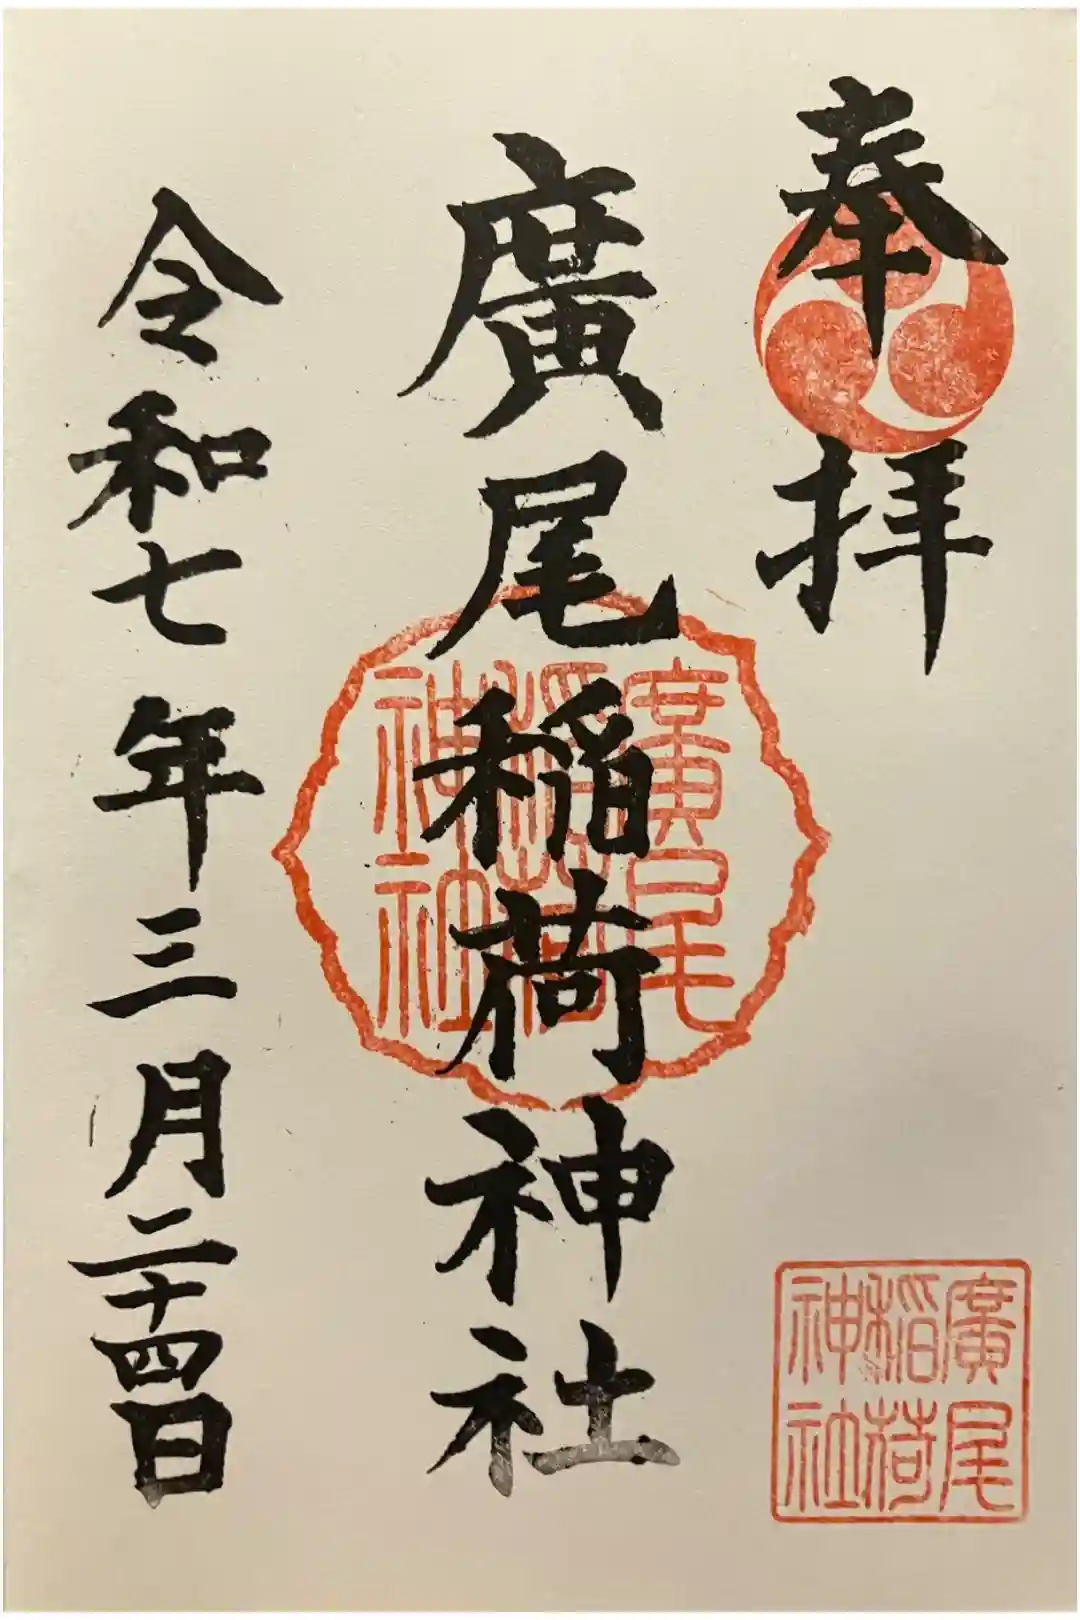 奉拝
廣尾稲荷神社
廣尾
稲荷
神社
廣尾
稲荷
神社
令和七年三月二十四日